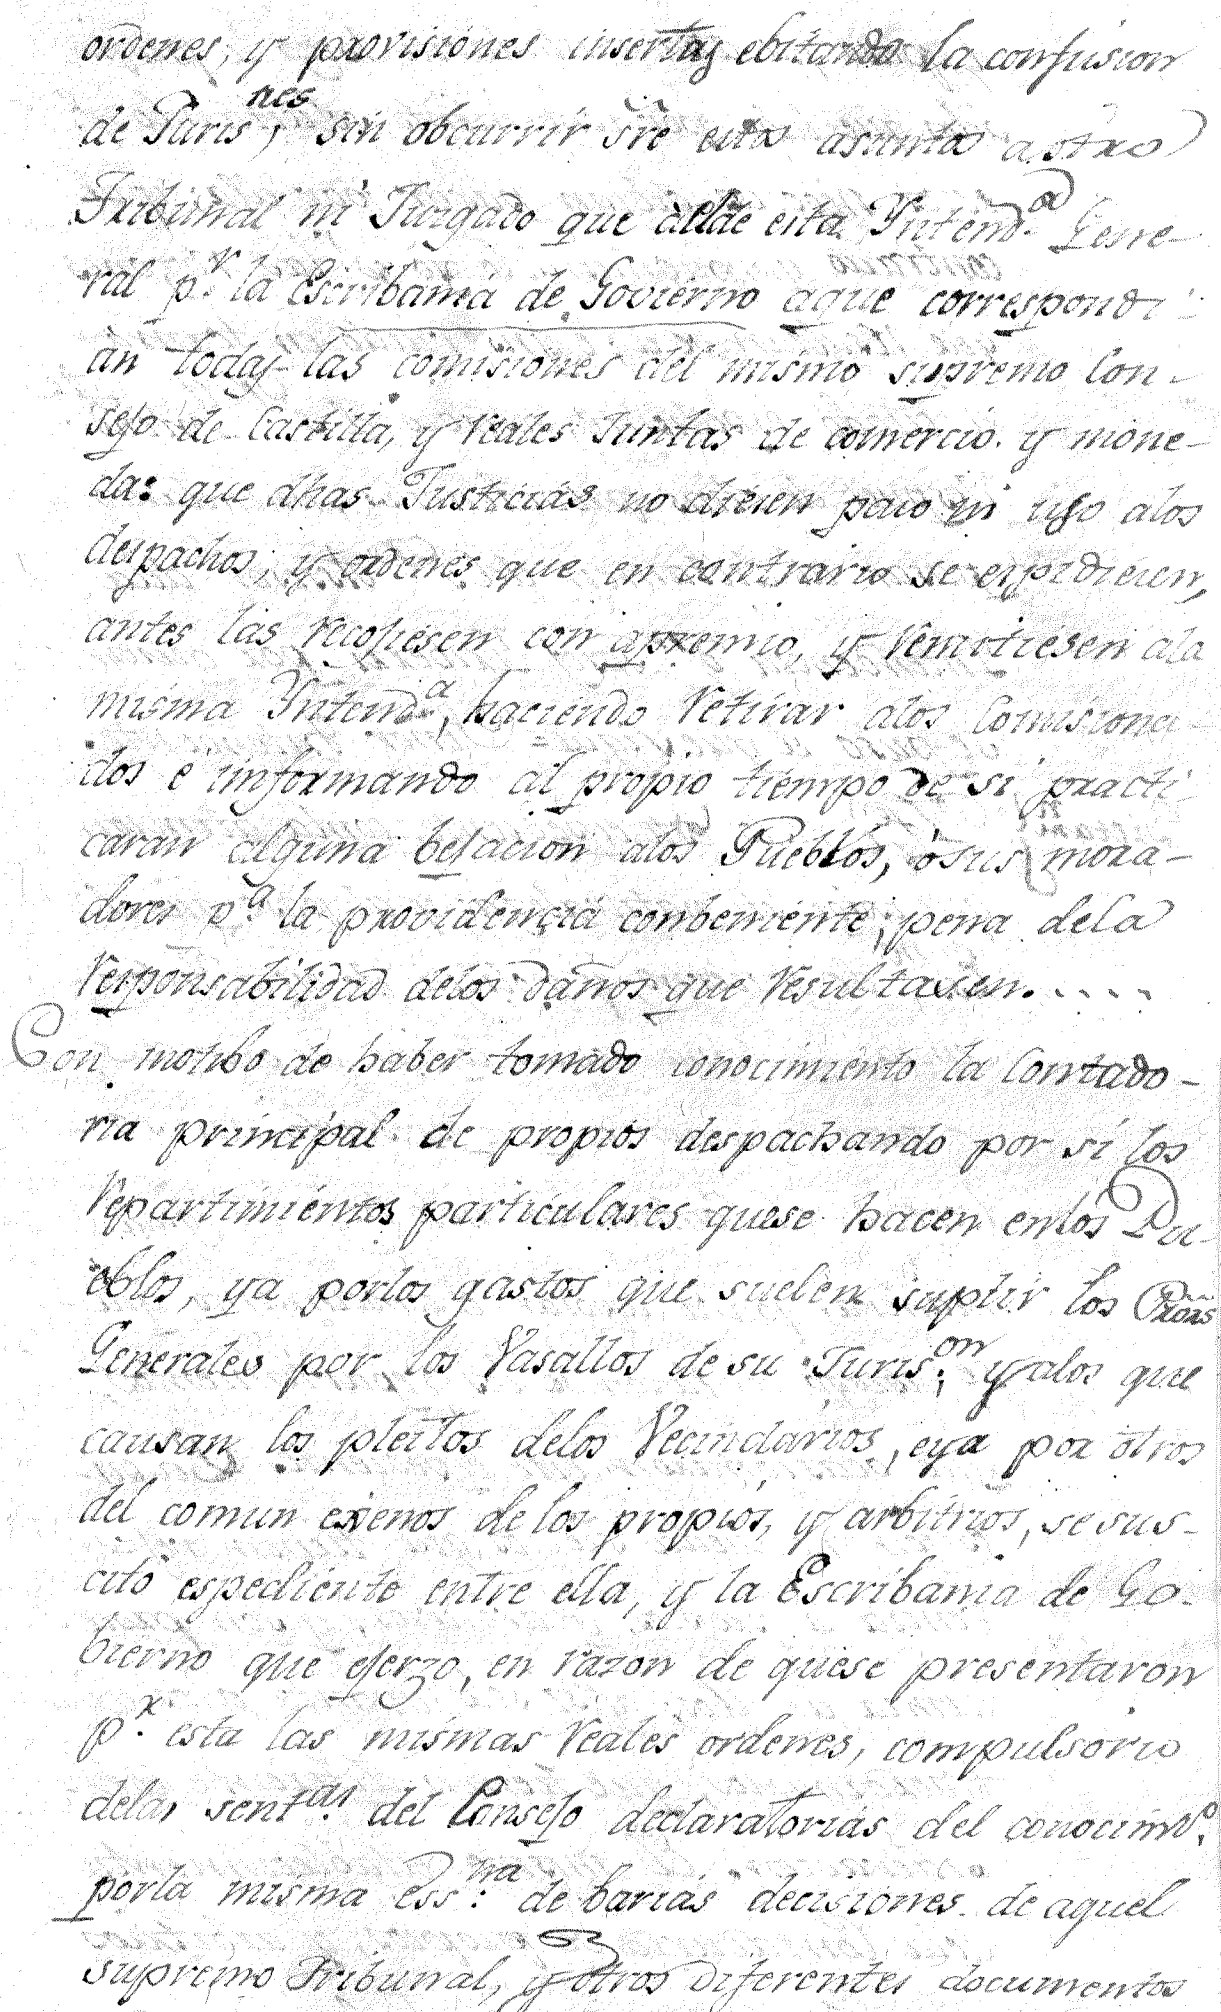 ordenes, y provisiones insertas ebitando la confusion
de Juris,nes sin obcurrir sre estos asuntos a otro
Tribunal ni Juzgado que al de esta Yntend.a Gene-
ral p.r la Escribania de Govierno aque correspondi-
an todas las comisiones del mismo supremo Con-
sejo de Castilla, y reales Juntas de comercio. y mone-
da: que dhas Justicias no diesen paso ni uso alos
despachos, y ordenes que en contrario se expidiesen,
antes las recojiesen con apremio, y remitiesen ala
misma Yntend.a, haciendo retirar alos Comisiona-
dos é informando al propio tiempo de si practi-
caran alguna bejacion alos Pueblos, ò sus mora-
dores p.a la providencia conbeniente; pena dela
responsabilidad delos daños que resultasen. . . . .
Con motibo de haber tomado conocimiento la Contado-
ria principal de propios despachando por si los
repartimientos particulares quese hacen enlos Pu-
eblos, ya porlos gastos que suelen suplir los Prõrs
Generales por los Vasallos de su Juris.on y alos que
causan los pleitos delos Vecindarios, eya por otros
del comun exenos de los propios, y arbitrios, se sus-
citó espediente entre ella, y la Escribania de Go-
bierno que ejerzo, en razon de quese presentaron
p.r esta las mismas reales ordenes, compulsorio
delas sent.as del Consejo declaratorias del conocim.to
porla misma ess.nia de barias decisiones de aquel
supremo Tribunal, y otros diferentes documentos